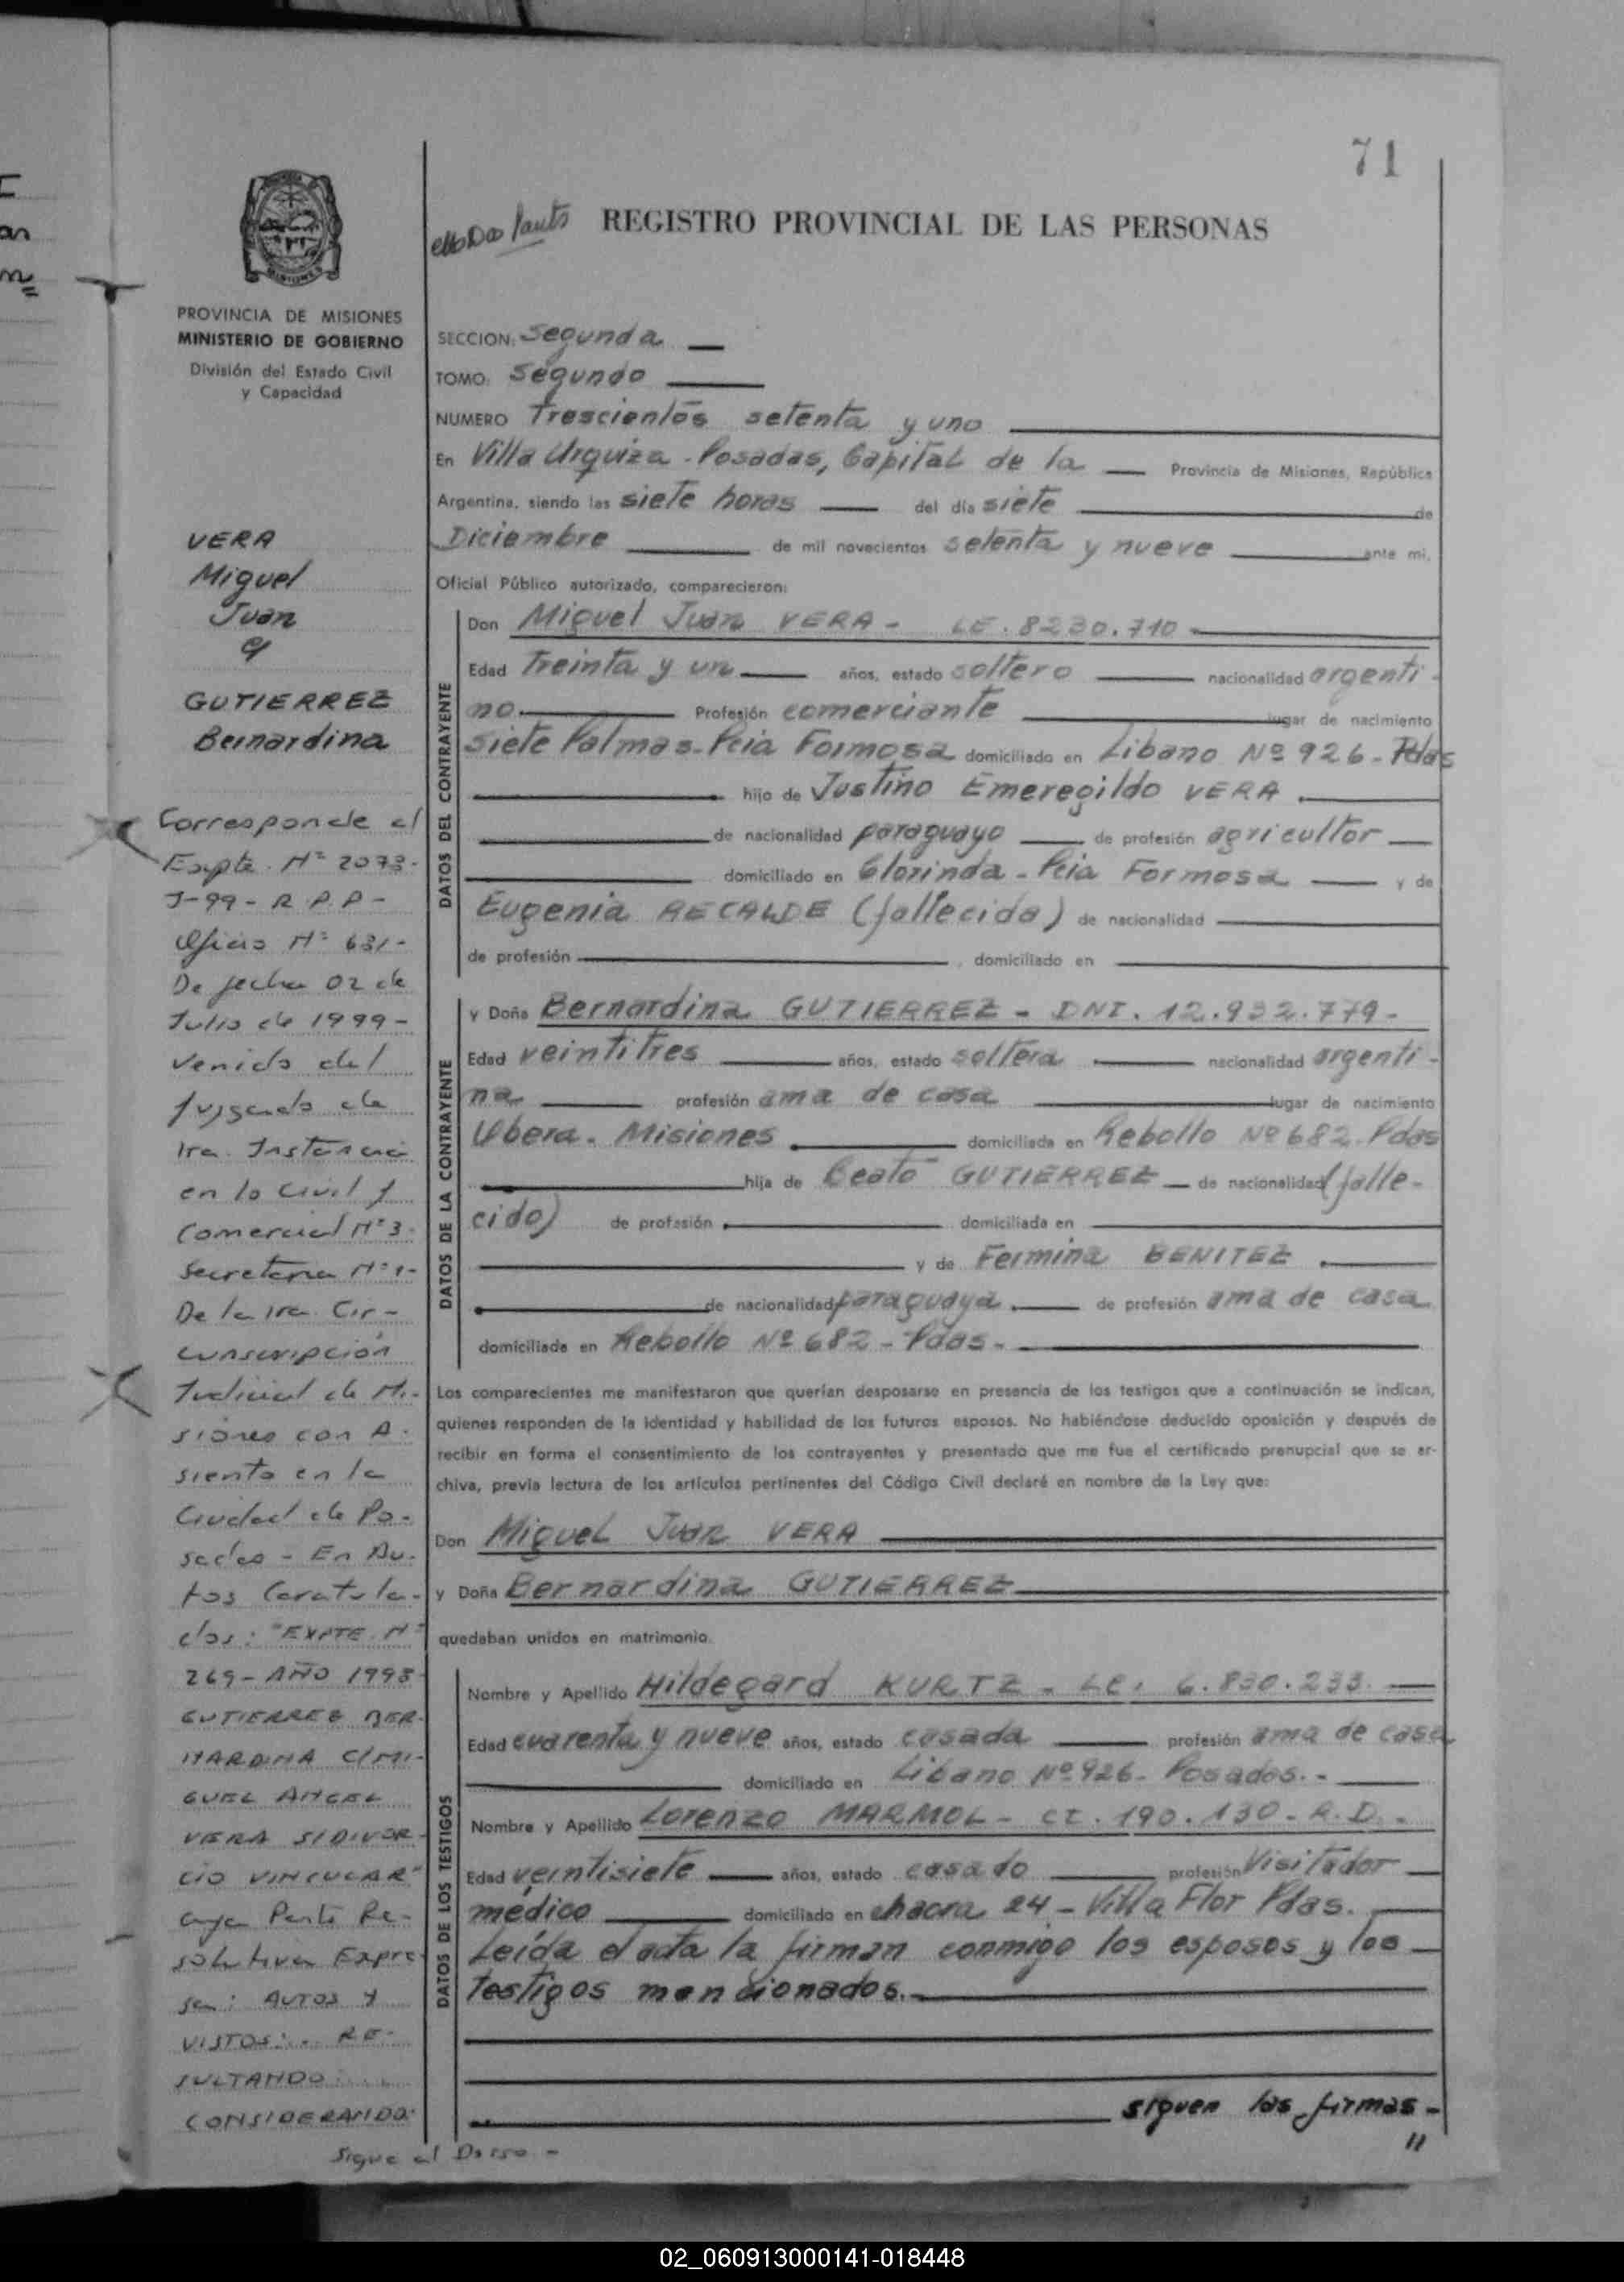 71
REGISTRO PROVINCIAL DE LAS PERSONAS
PROVINCIA DE MISIONES
MINISTERIO DE GOBIERNO
División del Estado Civil
y Capacidad
VERA
Miguel
Juan
c/
GUTIERREZ
Bernardina
Corresponde al
Expte. Nº 2073-
J-99-R.P.P-
Oficio Nº 631-
De fecha 02 de
Julio de 1999-
venido del
Juzgado de
1ra. Instancia
en lo Civil y
Comercial Nº 3.
Secretaria Nº 1-
De la 1ra. Cir-
cunscripción
Judicial de Mi-
siones con A-
siento en la
Ciudad de Po-
sadas - En Au-
tos Caratula-
dos: "EXPTE. Nº
269 - AÑO 1998
GUTIERREZ BER-
NARDINA C/MI-
GUEL ANGEL
VERA S/DIVOR-
CIO VINCULAR"
cuya Parte Re-
solutiva Expre-
sa: AUTOS Y
VISTOS:.. RE-
SULTANDO:....
CONSIDERANDO:
Sigue al Dorso -
SECCION: Segunda
TOMO: Segundo
NUMERO Trescientos setenta y uno
En Villa Urquiza - Posadas, Capital de la Provincia de Misiones, República
Argentina, siendo las siete horas del día siete de
Diciembre de mil novecientos setenta y nueve ante mi,
Oficial Público autorizado, comparecieron:
DATOS DEL CONTRAYENTE
Don Miguel Juan VERA - LE. 8230.710
Edad Treinta y un años, estado soltero nacionalidad argenti-
no Profesión comerciante lugar de nacimiento
Siete Palmas-Pcia Formosa domiciliado en Libano Nº 926 - Pdas
hijo de Justino Emeregildo VERA
de nacionalidad paraguayo de profesión agricultor
domiciliado en Clorinda - Pcia Formosa y de
Eugenia RECALDE (fallecida) de nacionalidad
de profesión , domiciliado en
DATOS DE LA CONTRAYENTE
y Doña Bernardina GUTIERREZ - DNI. 12.932.779-
Edad veintitres años, estado soltera nacionalidad argenti-
na profesión ama de casa lugar de nacimiento
Obera. Misiones domiciliada en Rebollo Nº 682. Pdas
hija de Beato GUTIERREZ de nacionalidad (falle-
cido) de profesión domiciliada en
y de Fermina BENITEZ
de nacionalidad paraguaya de profesión ama de casa
domiciliada en Rebollo Nº 682 - Pdas-
Los comparecientes me manifestaron que querían desposarse en presencia de los testigos que a continuación se indican,
quienes responden de la identidad y habilidad de los futuros esposos. No habiéndose deducido oposición y después de
recibir en forma el consentimiento de los contrayentes y presentado que me fue el certificado prenupcial que se ar-
chiva, previa lectura de los artículos pertinentes del Código Civil declaré en nombre de la Ley que:
Don Miguel Juan VERA
y Doña Bernardina GUTIERREZ
quedaban unidos en matrimonio.
DATOS DE LOS TESTIGOS
Nombre y Apellido Hildegard KURTZ - LC. 6.830.233
Edad cuarenta y nueve años, estado casada profesión ama de casa
domiciliado en Libano Nº 926 - Posadas.-
Nombre y Apellido Lorenzo MARMOL - CI. 190.130 - R.D.-
Edad veintisiete años, estado casado profesión Visitador
médico domiciliado en chacra 24 - Villa Flor Pdas.
Leída el acta la firman conmigo los esposos y los
testigos mencionados.-
siguen las firmas-
//
02_060913000141-018448